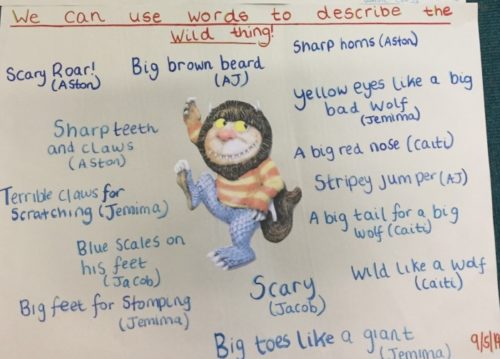 We can use words to describe the
Wild thing!
Scary Roar!
(Aston)
Big brown beard
(AJ)
Sharp horns (Aston)
Yellow eyes like a big
bad wolf
(Jemima)
Sharp teeth
and claws
(Aston)
A big red nose (Caiti)
Stripey jumper (AJ)
Terrible claws for
Scratching (Jemima)
A big tail for a big
wolf (Caiti)
Blue scales on
his feet
(Jacob)
Wild like a wolf
(Caiti)
Scary
(Jacob)
Big feet for Stomping
(Jemima)
Big toes like a giant
(Jemima)